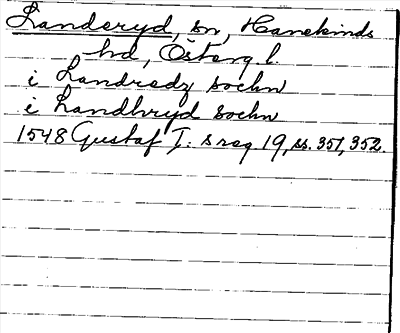 Landeryd, sn, Hanekinds
hd, Österg. l.
i Landredz sochn
i Landhryd sochn
1548 Gustaf I:s reg. 19, ss. 351, 352.